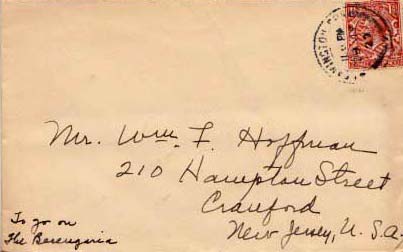 Mr. Wm. F. Hoffman
210 Hampton Street
Cranford
New Jersey, U.S.A.
To go on
The Berengaria